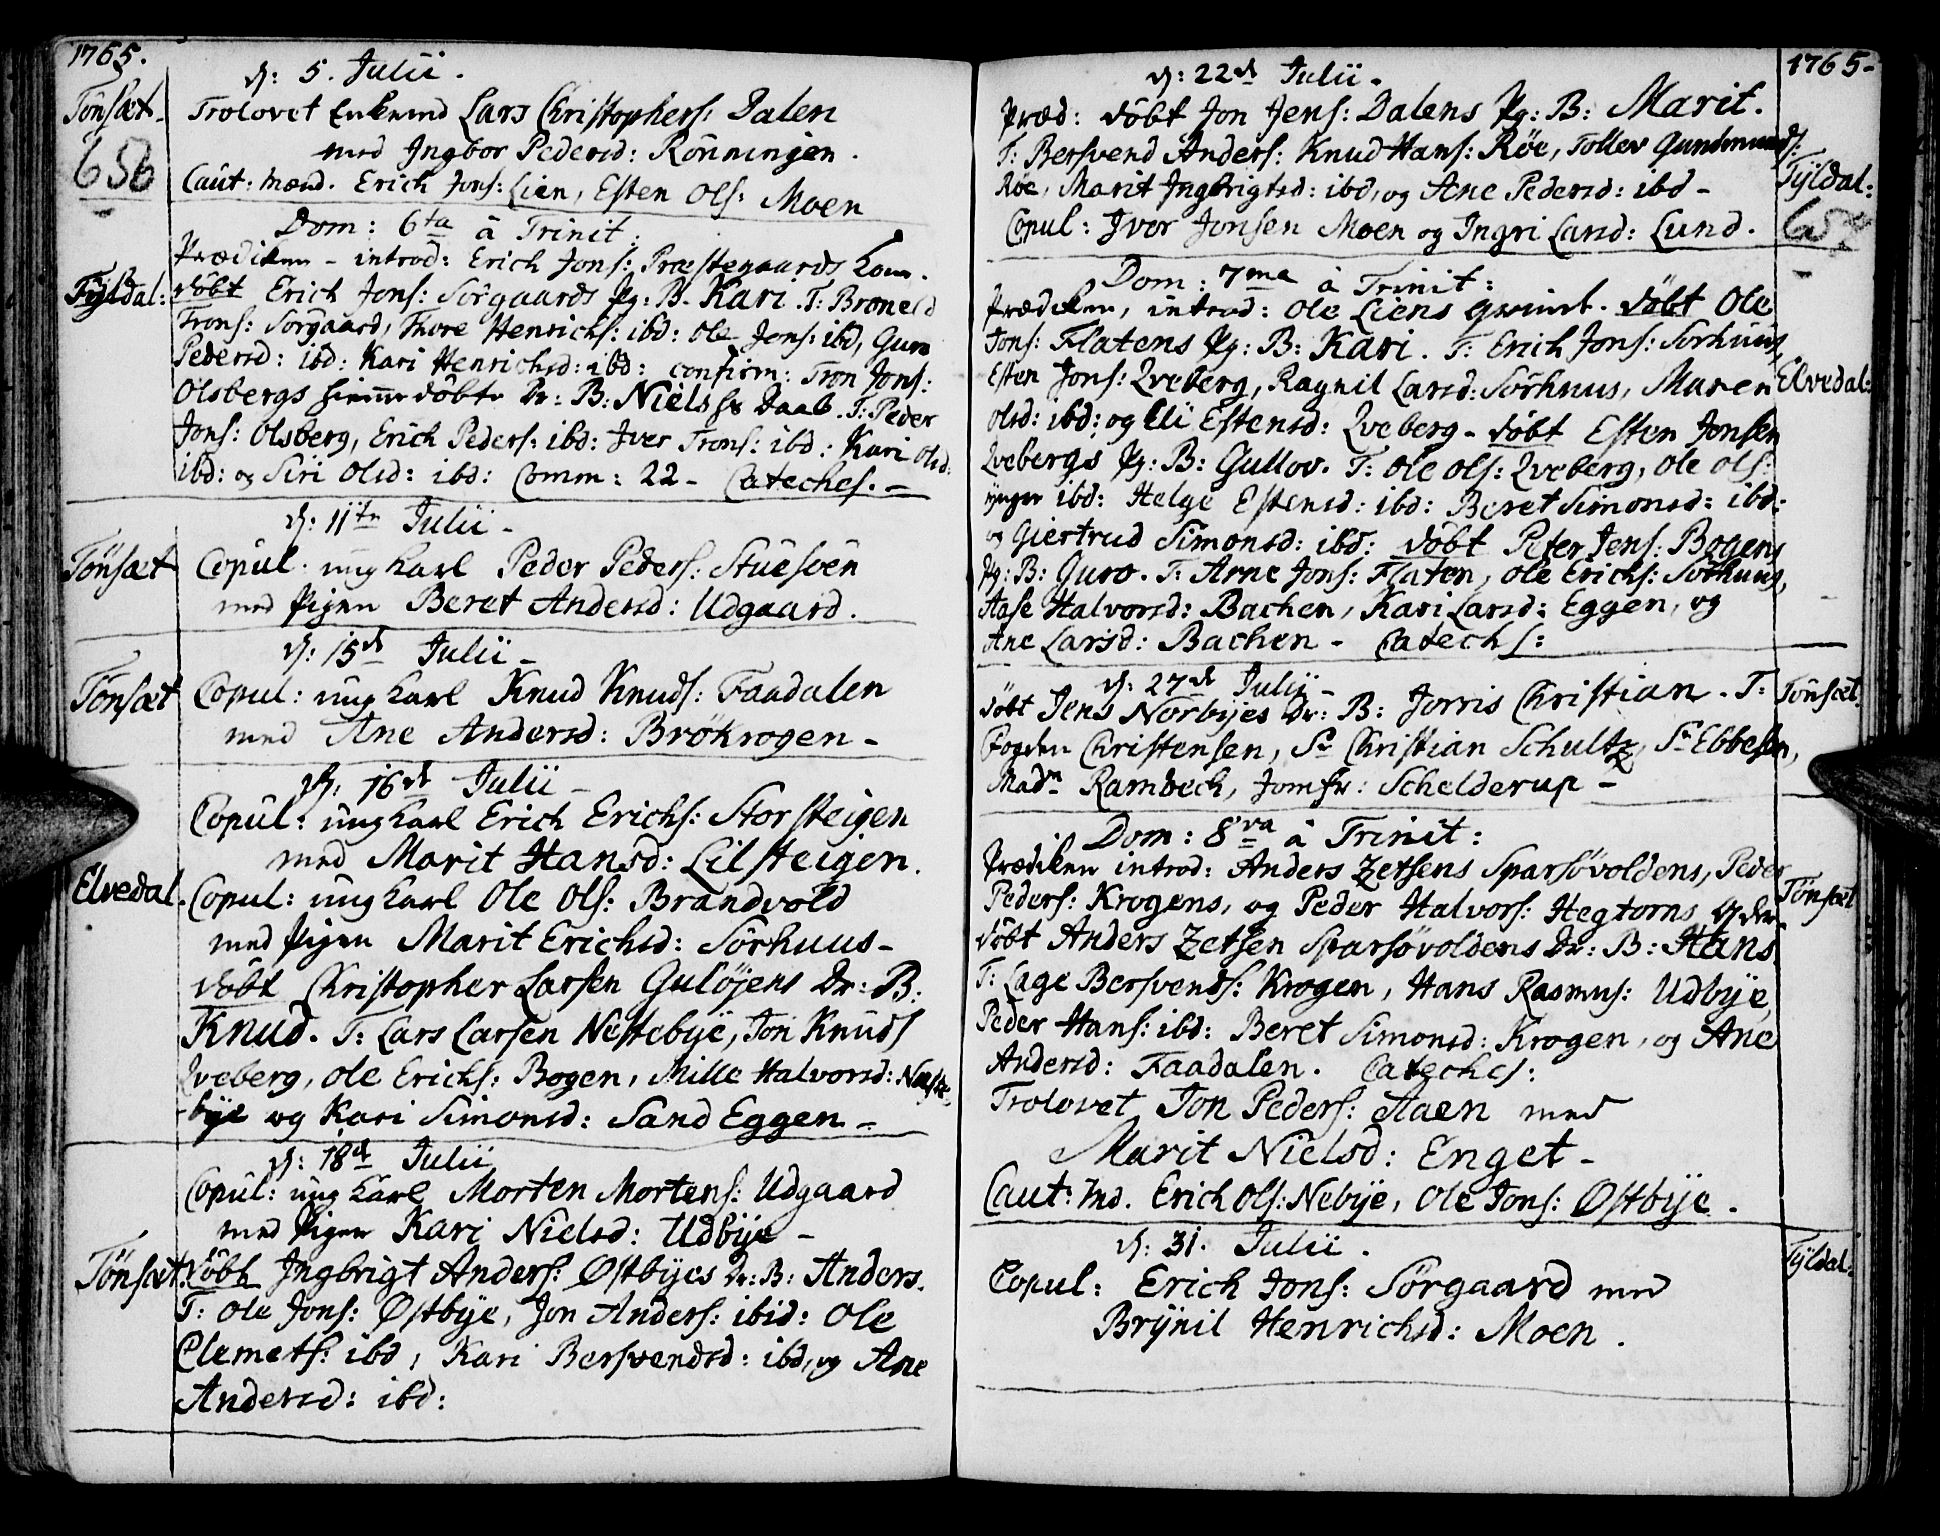 1765.
d: 5. Julii.
Tönsæt.
Trolovet Enkemd Lars Christophers: Dalen
med Ingbor Pedersd: Rönningen.
65b
Caut: mænd. Erich Jons: Lien, Esten Ols: Moen
Dom: 6ta à Trinit:
Prædiken - introd: Erich Jons: Præstegaards Kone.
Tÿldal:
döbt Erich Jons: Sörgaards Pg: B. Kari. T: Broneld
Trons: Sörgaard, Thore Henrichs: ibd: Ole Jons: ibd, Guro
Pedersd: ibd: Kari Henrichsd: ibd: confirm: Tron Jons:
Olsbergs hiemme döbte Dr: B: Niels Daab. T: Peder
Jons: Olsberg, Erich Peders: ibd: Iver Trons: ibd: Kari Olsd:
ibd: og Siri Olsd: ibd: Comm: 22 - Catechs. -
d: 11te Julii -
Tönsæt
Copul: ung Karl Peder Peders: Stuesöen
med Pigen Beret Andersd: Udgaard.
d: 15d Julii -
Tönsæt
Copul: ung Karl Knud Knuds: Faadalen
med Ane Andersd: Brökrogen -
d: 16d Julii -
Copul: ung Karl Erich Erichs: Storsteigen
med Marit Hansd: Lilsteigen.
Elvedal.
Copul: ung Karl Ole Ols: Brandvold
med Pigen Marit Erichsd: Sörhuus -
döbt Christopher Larsen Gulöjens Dr: B:
Knud. T: Lars Larsen Nestebÿe, Jon Knuds
Qveberg, Ole Erichs: Bogen, Mille Halvorsd: Neste-
bÿe og Kari Simonsd: Sand Eggen -
d: 18d Julii
Copul: ung Karl Morten Mortens: Udgaard
med Pigen Kari Nielsd: Udbÿe -
Tönsæt.
döbt Ingbrigt Anders: Østbÿes Dr: B: Anders.
T: Ole Jons: Østbÿe, Jon Anders: ibid: Ole
Clemets: ibd, Kari Bersvendsd: ibd, og Ane
Andersd: ibd:
1765-
d: 22d Julii -
Præd: döbt Jon Jens: Dalens Pg: B: Marit.
T: Bersvend Anders: Knud Hans: Röe, Tollev Gundmunds:
Tÿldal:
Röe, Marit Ingbrigtsd: ibd, og Ane Pedersd: ibd -
Copul: Iver Jonsen Moen og Ingri Larsd: Lund.
Dom: 7ma à Trinit:
Prædiken, introd: Ole Liens qvinde. döbt Ole
Jons: Flatens Pg: B: Kari. T: Erich Jons: Sörhuus,
Elvedal:
Esten Jons: Qveberg, Ragnil Larsd: Sörhuus, Maren
Olsd: ibd: og Eli Estensd: Qveberg - döbt Esten Jonsen
Qvebergs Pg: B: Gullov. T: Ole Ols: Qveberg, Ole Ols:
ÿnger ibd: Helge Estensd: ibd: Beret Simonsd: ibd:
og Giertrud Simonsd: ibd: döbt Peter Jens: Bogens
Pg: B: Guro. T: Arne Jons: Flaten, Ole Erichs: Sörhuus,
Aase Halvorsd: Bachen, Kari Larsd: Eggen, og
Ane Larsd: Bachen - Catechs:
d: 27d Julii -
Tönsæt
döbt Jens Norbÿes Dr: B: Jorris Christian. T:
Fogden Christensen, Sr Christian Schultz, Sr Ebbesen,
Madn Rambech, Jomfr: Schelderup -
Dom: 8va à Trinit:
Prædiken introd: Anders Zetsens Sparsövoldens, Peder
Tönsæt
Peders: Krogens, og Peder Halvors: Hegtorns
döbt Anders Zetsen Sparsövoldens Dr: B: Hans
T: Lage Bersvends: Krogen, Hans Rasmus: Udbÿe,
Peder Hans: ibd: Beret Simonsd: Krogen, og Ane
Andersd: Faadalen. Catechs:
Trolovet Jon Peders: Aaen med
Marit Nielsd: Enget -
Caut: md. Erich Ols: Nebÿe, Ole Jons: Østbÿe.
d: 31. Julii.
Tÿldal:
Copul: Erich Jons: Sörgaard med
Brÿnil Henrichsd: Moen.